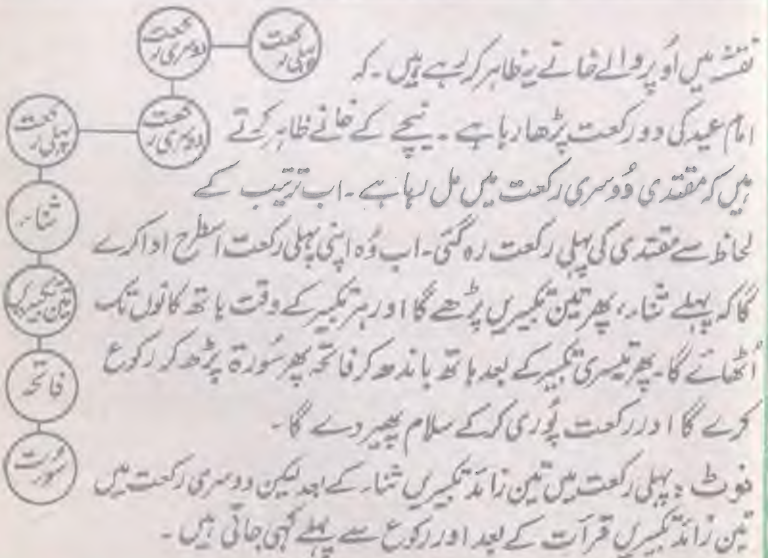 پہلی رکعت
دوسری رکعت
دوسری رکعت
پہلی رکعت
ثناء
تین تکبیریں
فاتحہ
سورت
نقشہ میں اُوپر والے خانے یہ ظاہر کر رہے ہیں ۔ کہ
امام عید کی دو رکعت پڑھا رہا ہے ۔ نیچے کے خانے ظاہر کرتے
ہیں کہ مقتدی دُوسری رکعت میں مل رہا ہے ۔ اب ترتیب کے
لحاظ سے مقتدی کی پہلی رکعت رہ گئی ۔ اب وُہ اپنی پہلی رکعت اسطرح ادا کرے
گا کہ پہلے ثناء ، پھر تین تکبیریں پڑھے گا اور ہر تکبیر کے وقت ہاتھ کانوں تک
اُٹھائے گا ۔ پھر تیسری تکبیر کے بعد ہاتھ باندھ کر فاتحہ پھر سُورۃ پڑھ کر رکوع
کرے گا اور رکعت پُوری کر کے سلام پھیر دے گا ۔
نوٹ : پہلی رکعت میں تین زائد تکبیریں ثناء کے بعد لیکن دوسری رکعت میں
تین زائد تکبیریں قرأت کے بعد اور رکوع سے پہلے کہی جاتی ہیں ۔